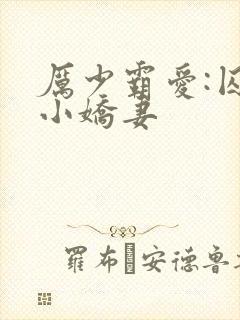 厲少霸愛:囚
小嬌妻
羅布 安德魯